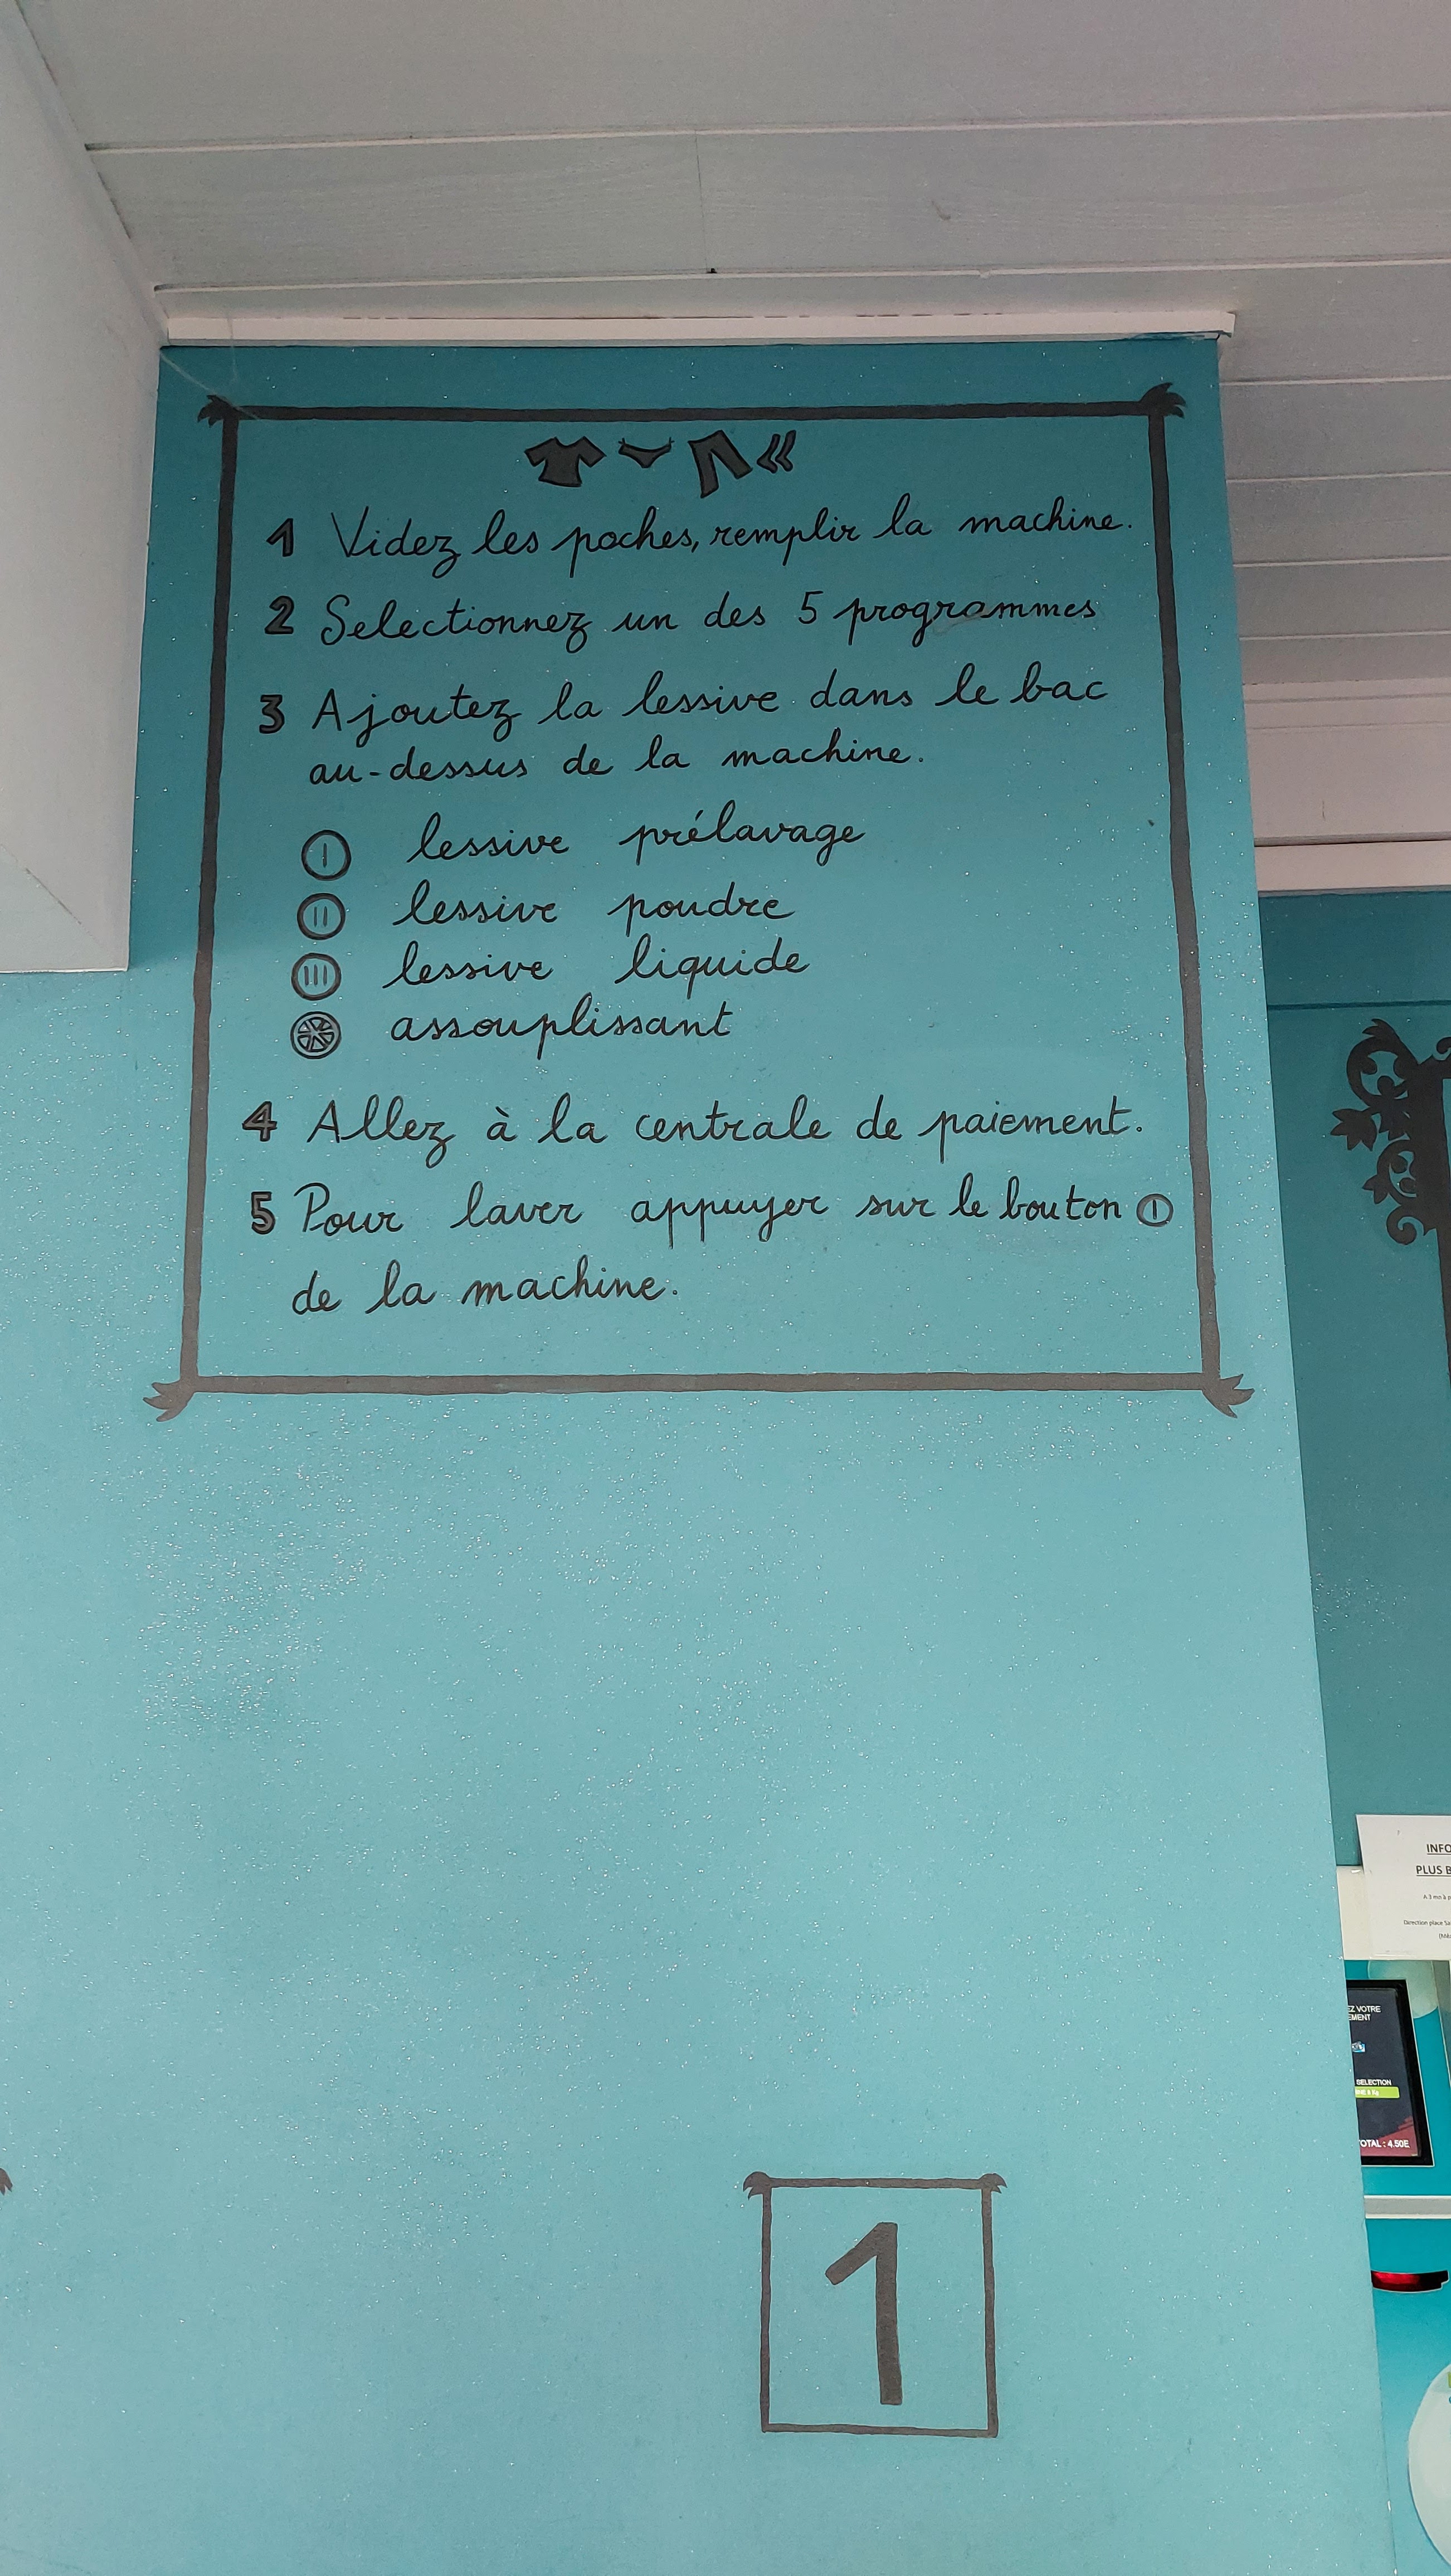 1 Videz les poches, remplir la machine.
2 Selectionnez un des 5 programmes
3 Ajoutez la lessive dans le bac
au-dessus de la machine.
I lessive prélavage
II lessive poudre
III lessive liquide
assouplissant
4 Allez à la centrale de paiement.
5 Pour laver appuyer sur le bouton I
de la machine.
INFO
PLUS B
Direction place Sa
EZ VOTRE
EMENT
SELECTION
OTAL : 4.50E
1